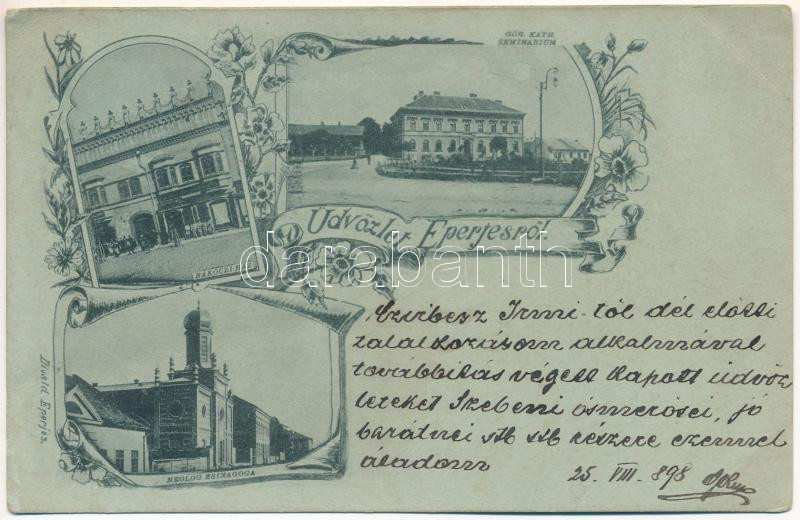 GÖR. KATH.
SEMINARIUM
Üdvözlet Eperjesről.
RÁKÓCZI-
darabanth
NEOLOG ZSINAGOGA
Divald, Eperjes.
Czribesz Irmi-től dél előtti
találkozásom alkalmával
továbbítás végett kapott üdvöz
leteket Szebeni ösmerősei, jó
barátnéi stb stb részére ezennel
átadom
25. VIII. 898